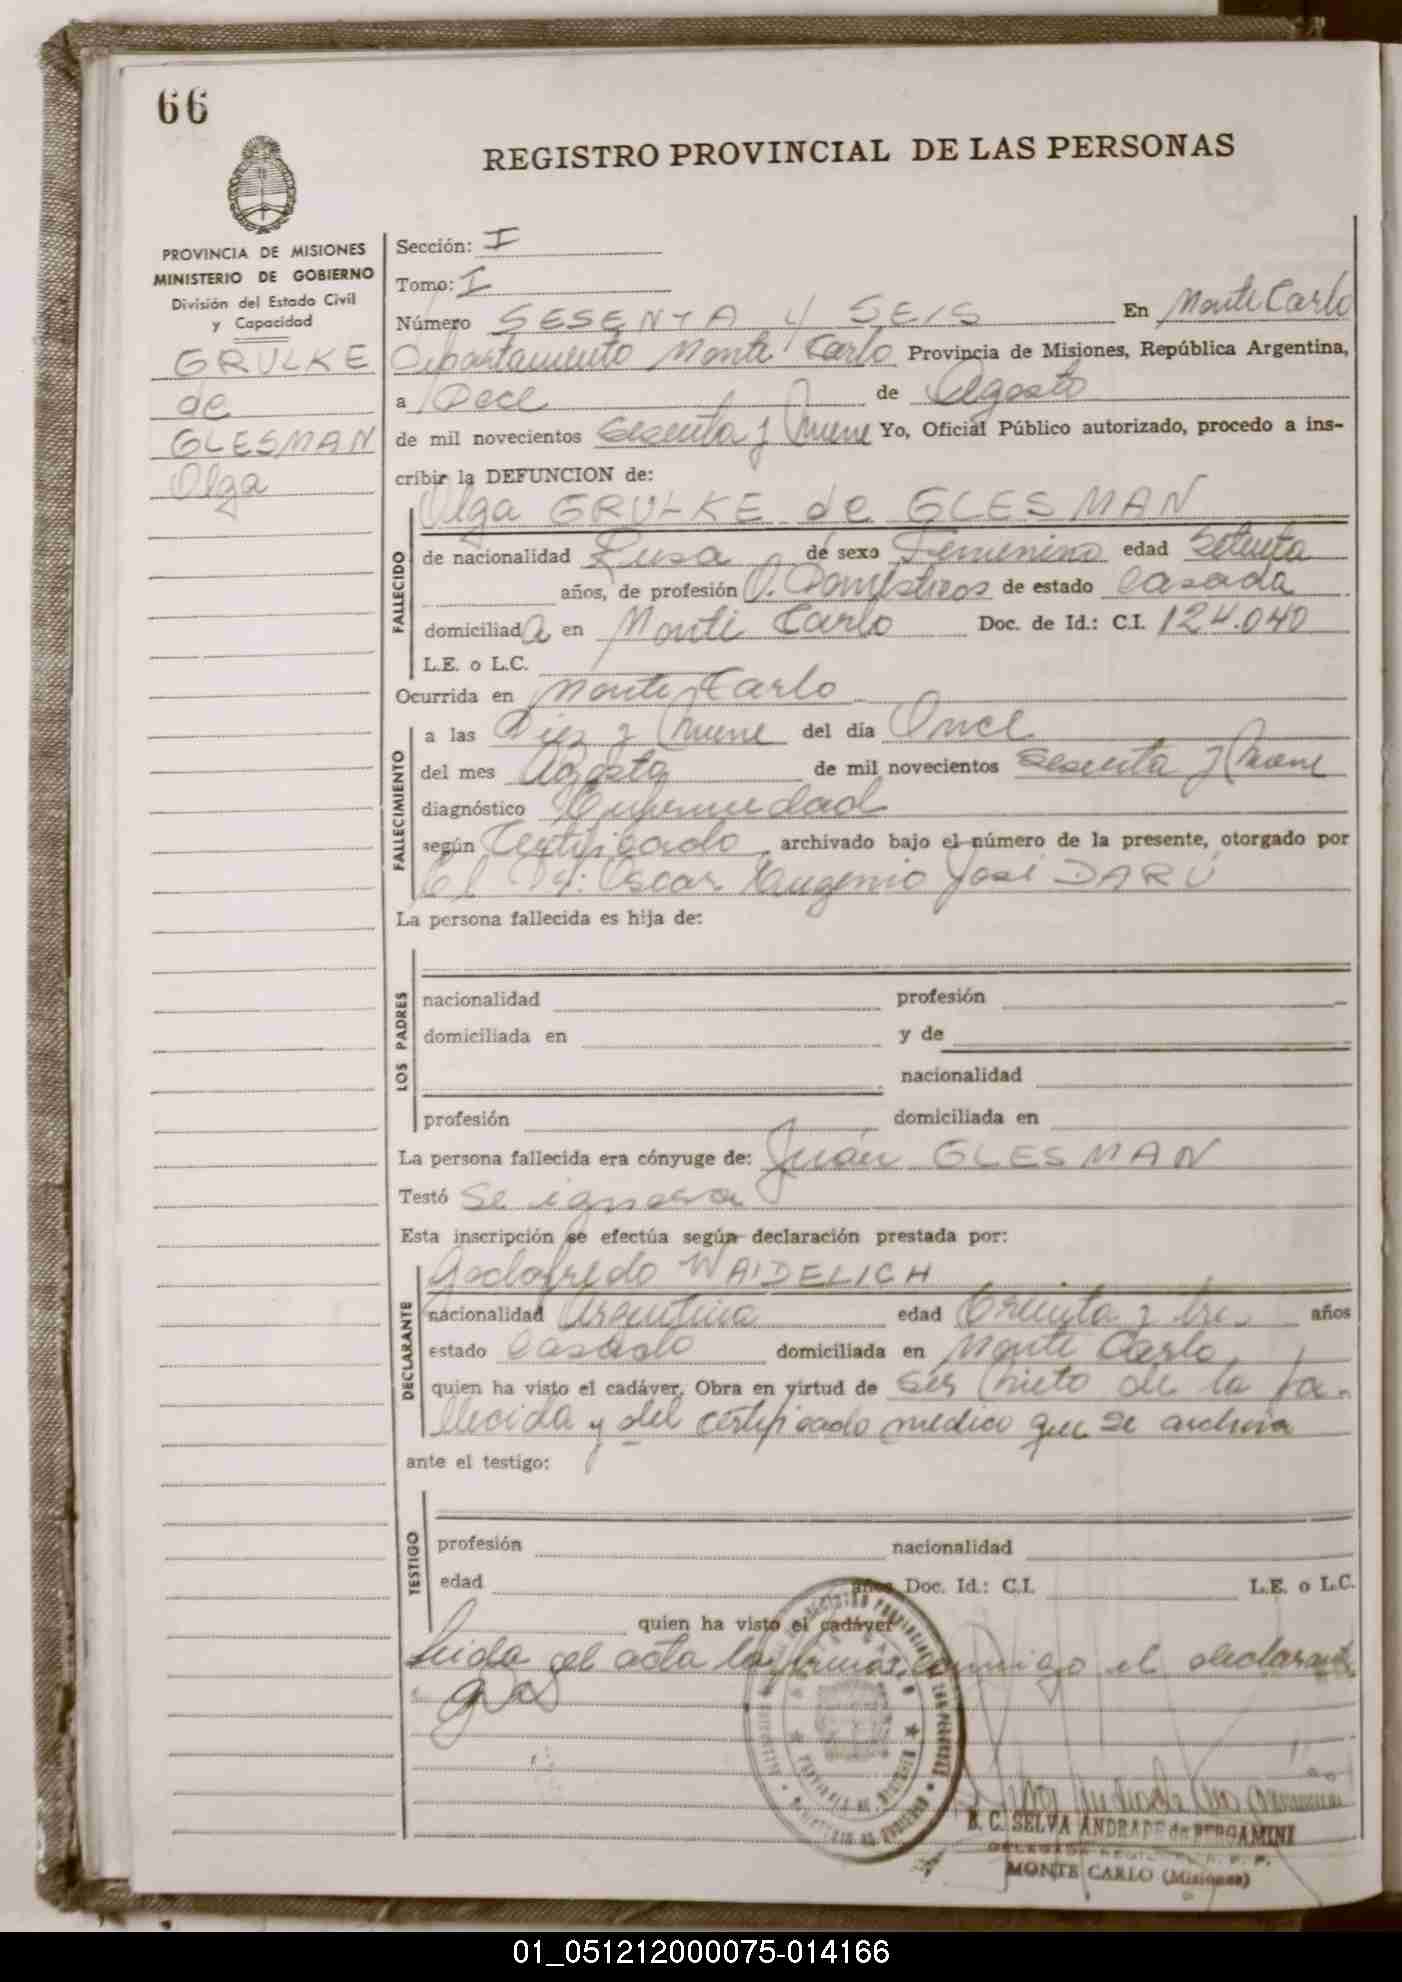 66
REGISTRO PROVINCIAL DE LAS PERSONAS
PROVINCIA DE MISIONES
MINISTERIO DE GOBIERNO
División del Estado Civil
y Capacidad
GRULKE
de
GLESMAN
Olga
Sección: I
Tomo: I
Número SESENTA Y SEIS En Monte Carlo
Departamento Monte Carlo Provincia de Misiones, República Argentina,
a Doce de Agosto
de mil novecientos sesenta y Nueve Yo, Oficial Público autorizado, procedo a ins-
cribir la DEFUNCION de:
Olga GRULKE de GLESMAN
FALLECIDO
de nacionalidad Rusa de sexo Femenino edad Setenta
años, de profesión Q. Domésticos de estado Casada
domiciliada en Monte Carlo Doc. de Id.: C.I. 124.040
L.E. o L.C.
Ocurrida en Monte Carlo
FALLECIMIENTO
a las Diez y Nueve del día Once
del mes Agosto de mil novecientos sesenta y Nueve
diagnóstico Enfermedad
según Certificado archivado bajo el número de la presente, otorgado por
El Dr. Oscar Eugenio José DARÚ
La persona fallecida es hija de:
LOS PADRES
nacionalidad profesión
domiciliada en y de
nacionalidad
profesión domiciliada en
La persona fallecida era cónyuge de: Juán GLESMAN
Testó se ignora
Esta inscripción se efectúa según declaración prestada por:
DECLARANTE
Godofredo WAIDELICH
nacionalidad Argentina edad treinta y tres años
estado Casado domiciliada en Monte Carlo,
quien ha visto el cadáver. Obra en virtud de ser nieto de la fa-
llecida y del certificado médico que se archiva
ante el testigo:
TESTIGO
profesión nacionalidad
edad años Doc. Id.: C.I. L.E. o L.C.
quien ha visto el cadáver
Leida el acta la firma conmigo el declarante
B. C. SELVA ANDRADE de BERGAMINI
MONTE CARLO (Misiones)
01_051212000075-014166